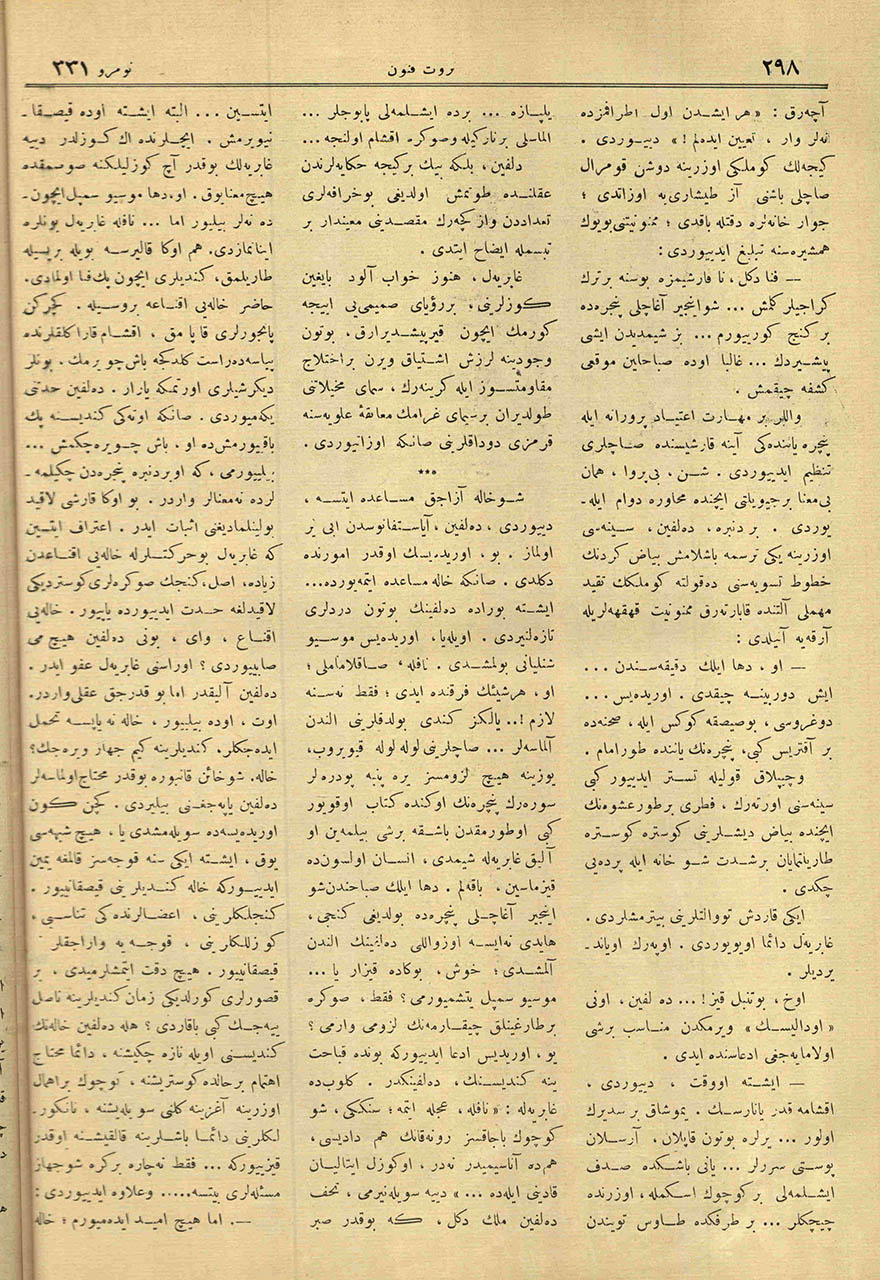 ٢٩٨
ثروت فنون
نومرو ٣٣١
آچه‌رق : « هر ایشدن اول اطرافزده
نه‌لر وار ، تعیین ایده‌لم ! » دییوردی .
کیجه‌لك کوملکی اوزرینه دوشن قومرال
صاچلی باشنی آز طیشاری‌یه اوزاتدی ؛
جوار خانه‌لره دقتله باقدی ؛ ممنونیتنی بویوك
همشیره‌سنه تبلیغ ایدییوردی :
— فنا دکل ، تا قارشیمزه بوسنه برترك
کراجیلر کلمش ... شو اینجیر آغاچلی پنجره‌ده
بر کنج کورییورم ... بز شیمدیدن ایشی
پیشیردك ... غالبا اوده صباحلین موقعی
کشفه چیقمش .
واللر بر مهارت اعتیاد پرورانه ایله
پنجره یاننده‌کی آینه قارشیسنده صاچلری
تنظیم ایدییوردی . شن ، بی‌پروا ، همان
بی‌معنا برجیویاتی ایچنده محاوره دوام ایله‌ـ
یوردی . بردنبره ، ده‌لفین ، سینه‌سی
اوزرینه یکی ترسمه باشلامش بیاض کردنك
خطوط تسویه‌سنی ده‌قولته کوملکك تقید
مهملی آلتنده قابارته‌رق ممنونیت قهقهه‌لریله
آرقه‌یه آتیلدی :
— او ، دها ایلك دقیقه‌سندن ...
ایش دوربینه چیقدی . اوریده‌یس ...
دوغروسی ، بوصیصقه کوکس ایله ، صحنه‌ده
بر آقتریس کبی ، پنجره‌نك یاننده طورامام .
وچیپلاق قولیله تستر ایدییور کبی
سینه‌سنی اورته‌رك ، فطری برطور عشوه‌نك
ایچنده بیاض دیشلرینی کوستره کوستره
طاریلتمایان برشدت شو خانه ایله پرده‌یی
چکدی .
ایکی قاردش تووالتلرینی بیترمشلردی .
غابریه‌ل دائما اویویوردی . اوپه‌رك اویاندـ
یردیلر .
اوخ ، بوتنبل قیز ! ... ده لفین ، اونی
« اودالیسك » ویرمکدن مناسب برشی
اولامایه‌جغی ادعاسنده ایدی .
— ایشته اووقت ، دییوردی ،
اقشامه قدر یانارسك . یموشاق بر سدیرك
اولور ... یرلره بوتون قاپلان ، آرسلان
پوستی سررلر ... یانی باشکده صدف
ایشلمه‌لی بر کوچوك اسکمله ، اوزرنده
چیچکلر ... بر طرفکده طاوس تویندن
یلپازه ... برده ایشلمه‌لی پابوجلر ...
الماسلی برنارکیله وصوکره اقشام اولنجه ...
دلفین ، بلکه بیك برکیجه حکایه‌لرندن
عقلنده طوتمش اولدیغی بوخرافه‌لری
تعداددن واز کچه‌رك مقصدینی معیندار بر
تبسمله ایضاح ایتدی .
غابریه‌ل ، هنوز خواب آلود بایغین
کوزلرینی ، بررؤیای صمیمی‌یی ایبجه
کورمك ایچون قیرپیشدیرارق ، بوتون
وجودینه لرزش اشتیاق ویرن براختلاج
مقاومتسوز ایله کرینه‌رك ، سمای مخیلاتی
طولدیران برسیمای غرامك معانقهٔ علویه‌سنه
قرمزی دوداقلرینی صانکه اوزاتیوردی .
***
شوخاله آزاجق مساعده ایتسه ،
دییوردی ، ده‌لفین ، آیاستفانوسدن ایی یر
اولماز . بو ، اوریده‌یسك اوقدر امورنده
دکلدی . صانکه خاله مساعده ایتمه‌یورده ...
ایشته بوراده ده‌لفینك بوتون دردلری
تازه‌لنیردی . اویله‌یا ، اوریده‌یس موسیو
شنلیانی بولمشدی . نافله ، صاقلاماملی ؛
او ، هر شیئك فرقنده ایدی ؛ فقط نه‌سنه
لازم !.. یالکز کندی بولدقلرینی الندن
آلماسه‌لر ... صاچلرینی لوله لوله قیویروب ،
یوزینه هیچ لزومسز یره پنبه پودره‌لر
سوره‌رك پنجره‌نك اوکنده کتاب اوقویور
کبی اوطورمقدن باشقه برشی بیلمه‌ین او
آلیق غابریه‌له شیمدی ، انسان اولسون‌ده
قیزماسین ، باقه‌لم . دها ایلك صباحندن‌شو
اینجیر آغاچلی پنجره‌ده بولدیغی کنجی ،
هایدی نه‌ایسه اوزواللی ده‌لفینك الندن
آلمشدی ؛ خوش ، بوکاده قیزار یا ...
موسیو سمپل یتشمیورمی ؟ فقط ، صوکره
برطارغینلق چیقارمه‌نك لزومی وارمی ؟
یو ، اوریدیس ادعا ایدییورکه بونده قباحت
ینه کندیسنك ، ده‌لفینکدر . کلوب‌ده
غابریه‌له : « نافله ، عجله ایتمه ؛ سنککی ، شو
کوچوك باجاقسز رونه‌قانك هم دادیسی ،
هم‌ده آناسیمیدر نه‌در ، اوکوزل ایتالیان
قادینی ایله‌ده ... » دییه سویله‌نیرمی ، تحف
ده‌لفین ملك دکل ، که بوقدر صبر
ایتسین ... البته ایشته اوده قیصقاـ
نیویرمش . ایچلرنده اك کوزلدر دییه
غابریه‌لك بوقدر آچ کوزلیلکنه صوصمقده
هیچ معنایوق . او ، دها موسیو سمپل ایچون‌ـ
ده نه‌لر بیلیور اما ... نافله غابریه‌ل بونلره
اینانمازدی . هم اوکا قالیرسه بویله برپسیله
طاریلمق ، کندیلری ایچون پك فنا اولمادی .
حاضر خاله‌یی اقناعه بروسیله . کچرکن
پانجورلری قاپامق ، اقشام قاراکلقلرنده
پیاسه‌ده‌راست کلدکجه باش چویرمك . بونلر
دیکرشیلری اورتمکه یارار . ده‌لفین حدتنی
یکه‌میوردی . صانکه اوته‌کی کندیسنه پك
باقیورمش‌ده او ، باش چویره‌چکمش ...
بیلییورمی ، که اوبردنبره پنجره‌دن چکیلمه‌ـ
لرده نه‌معنالر واردر . بو اوکا قارشی لاقید
بولینلمادیغنی اثبات ایدر . اعتراف ایتسین
که غابریه‌ل بوحرکتلرله خاله‌یی اقناعدن
زیاده ، اصل ، کنجك صوکره‌لری کوستردیکی
لاقیدلغه حدت ایدییورده یاپیور . خاله‌یی
اقناع ، وای ، بونی ده‌لفین هیچ می
صایییوردی ؟ اوراسنی غابریه‌ل عفو ایدر .
ده‌لفین آلیقدر اما بو قدرجق عقلی‌واردر .
اوت ، اوده بیلییور ، خاله نه یاپسه تحمل
ایده‌جکلر . کندیلرینه کیم جهاز ویره‌جك ؟
خاله . شوخائن قانبوره بوقدر محتاج‌اولماسه‌لر
ده‌لفین یاپه‌جغنی بیلیردی . کچن کون
اوریده‌یسه‌ده سویله‌مشدی یا ، هیچ شبهه‌سی
یوق ، ایشته ایکی سنه قوجه‌سز قالمغه یمین
ایدییورکه خاله کندیلرینی قیصقانییور .
کنجلکلرینی ، اعضالرنده‌کی تناسبی ،
کوزللکلرینی ، قوجه‌یه واراجقلرینی
قیصقانییور . هیچ دقت ایتمشلرمیدی ، بر
قصورلری کورلدیکی زمان کندیلرینه ناصل
ییه‌جك کبی باقاردی ؟ هله ده‌لفین خاله‌نك
کندیسنی اویله نازه چکیشنه ، دائما محتاج
اهتمام برحالده کوستریشنه ، کوچوك براهمال
اوزرینه آغزینه کلنی سویله‌یشنه ، نانکورـ
لکلرینی دائما باشلرینه قاقیشنه اوقدر
قیزییورکه ... فقط نه‌چاره برکره شوجهاز
مسئله‌لری بیتسه ..... وعلاوه ایدییوردی :
— . اما هیچ امید ایده‌میورم ؛ خاله